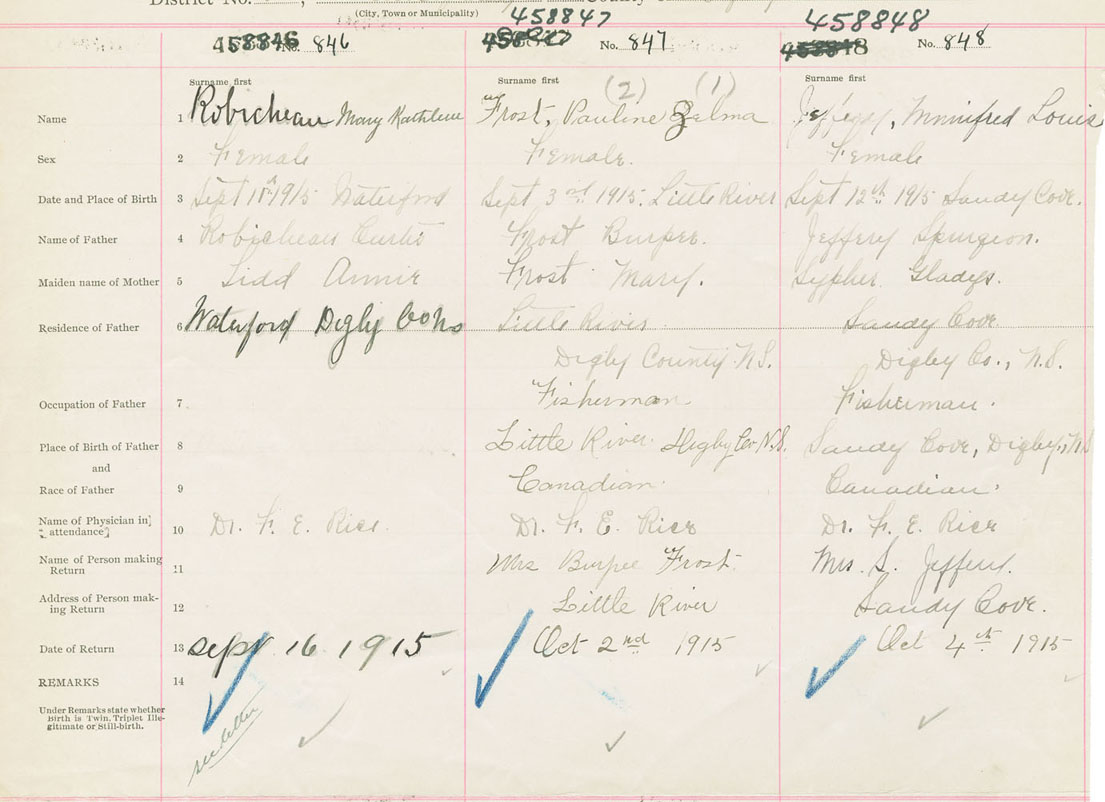 District No.
(City, Town or Municipality)
County
458846 No. 846
458847 No. 847
458848 No. 848
Surname first Surname first (2) (1) Surname first
Name 1 Robicheau Mary Kathleen Frost, Pauline Zelma Jeffery, Winnifred Louis
Sex 2 Female Female. Female
Date and Place of Birth 3 Sept 1915 Waterford Sept 3rd 1915. Little River Sept 12th 1915 Sandy Cove.
Name of Father 4 Robicheau Curtis Frost Burpee. Jeffery Spurgeon.
Maiden name of Mother 5 Lidd Annie Frost Mary. Sypher Gladys.
Residence of Father 6 Waterford Digby Co NS Little River Sandy Cove
Digby County N.S. Digby Co., N.S.
Occupation of Father 7 Fisherman. Fisherman.
Place of Birth of Father 8 Little River Digby Co N.S. Sandy Cove, Digby, N.S
and
Race of Father 9 Canadian. Canadian.
Name of Physician in attendance 10 Dr. F. E. Rice. Dr. F. E. Rice Dr. F. E. Rice
Name of Person making Return 11 Mrs Burpee Frost. Mrs. S. Jeffery.
Address of Person making Return 12 Little River Sandy Cove.
Date of Return 13 Sept 16 1915 Oct 2nd 1915 Oct 4th 1915
REMARKS 14
Under Remarks state whether
Birth is Twin, Triplet Ille-
gitimate or Still-birth.
see letter